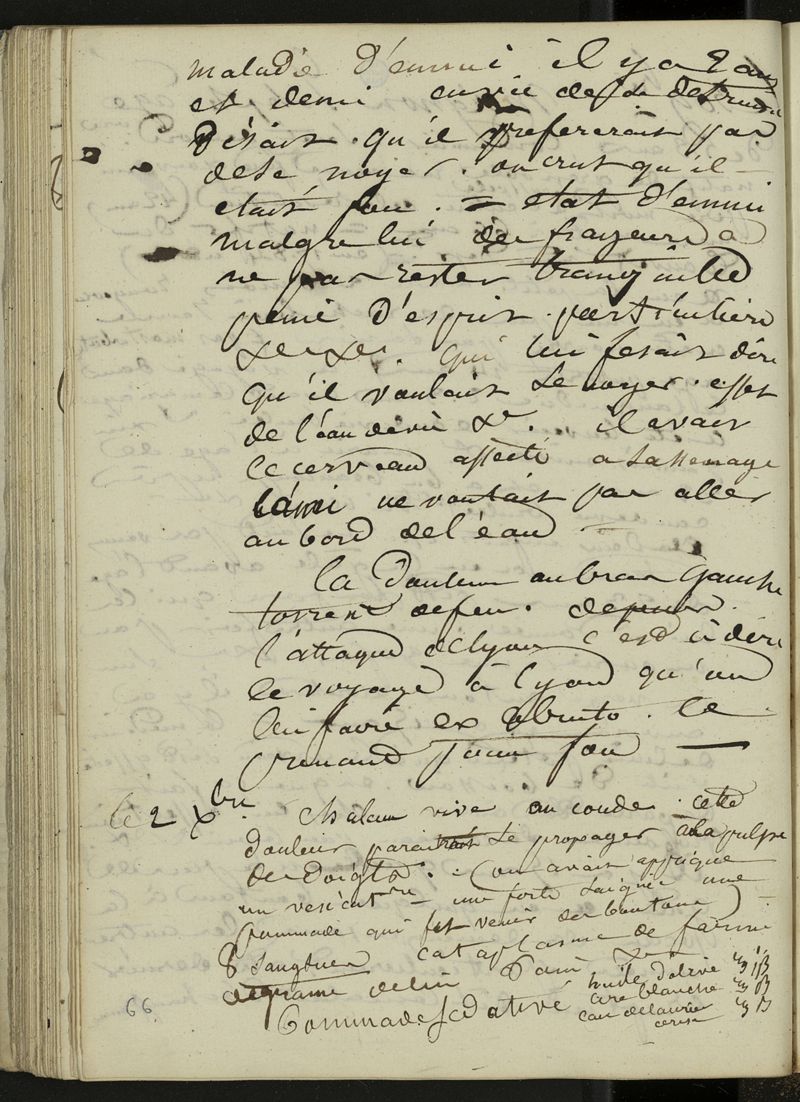 maladie d'ennui il y a 2 ans
et demi envie de se detruire
Disait qu'il prefererait pas
de se noyer. on crut qu'il
etait fou. = etat d'ennui
malgre lui des frayeurs a
ne pas rester tranquille
peine d'esprit particuliere
&c &c. qui lui fesait dire
qu'il voulait se noyer. effet
de l'eau de vie &c. il avait
le cerveau affecté a Sassenage
ne voulait pas aller
au bord de l'eau —
la Douleur au bras gauche
torrent de feu. depuis
l'attaque de lyon c'est à dire
le voyage à lyon qu'on
lui fit faire ex abrupto. le
prenant pour fou —
le 2 Xbre chaleur vive au coude. cette
douleur parait se propager a la pulpe
des doigts. (on avait appliqué
un vesicatre — une forte saignée une
pommade qui fit venir des boutons)
8 sangsues cataplasme de farine
de graine de lin &c
Pommade sedative huile d'olive
cire blanche
eau de laurier
cerise
66